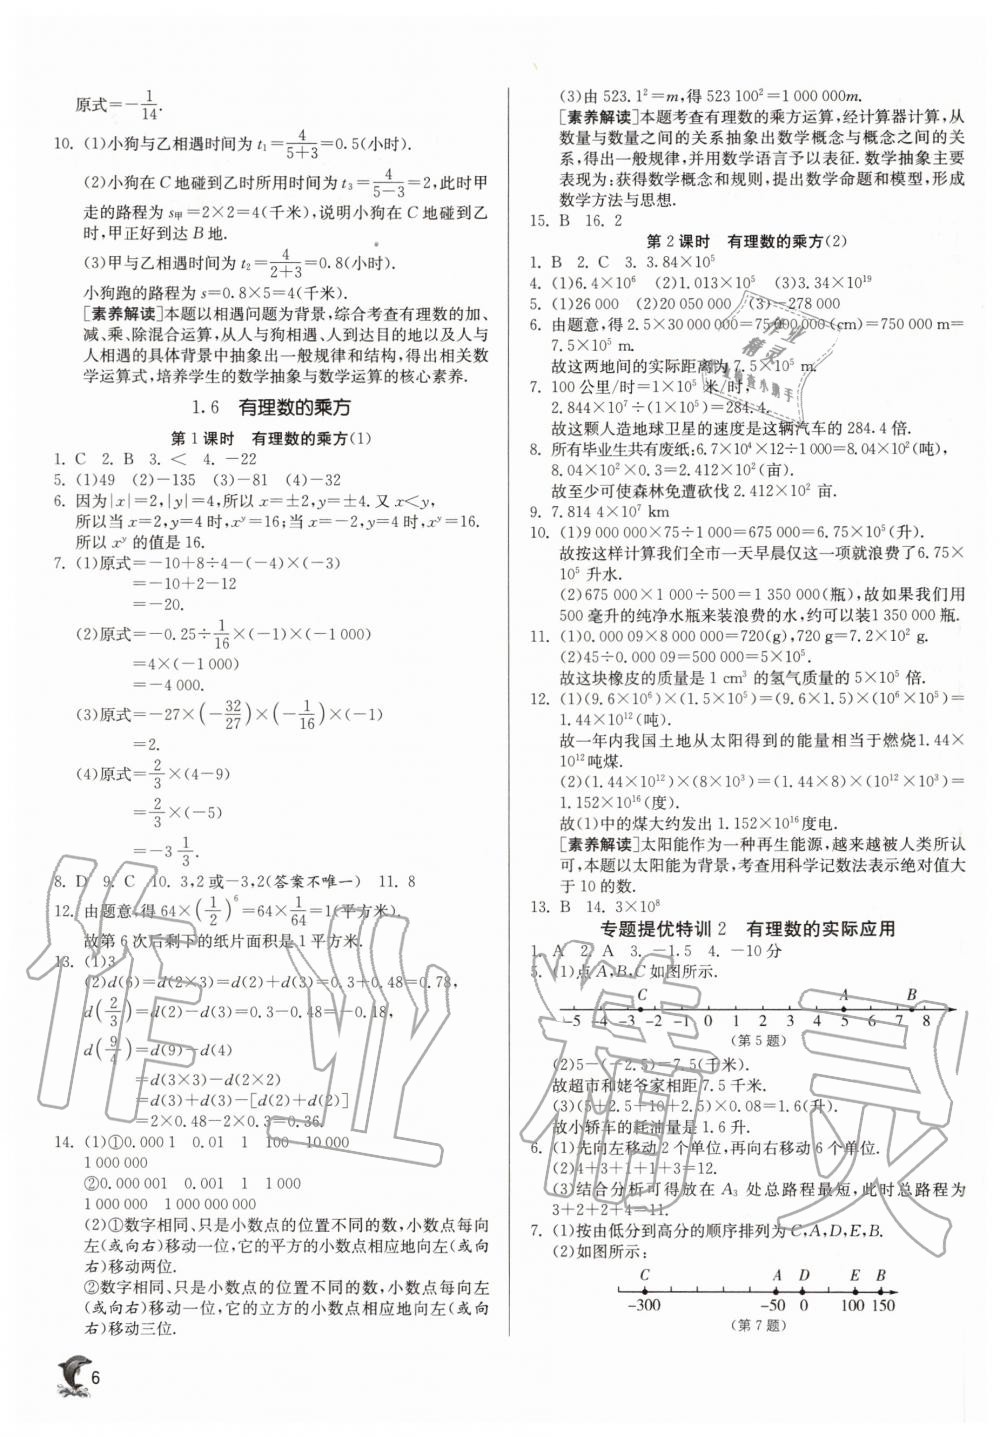 原式=-1/14.
10. (1)小狗与乙相遇时间为 t₁=4/(5+3)=0.5(小时).
(2)小狗在 C 地碰到乙时所用时间为 t₃=4/(5-3)=2,此时甲
走的路程为 s甲=2×2=4(千米),说明小狗在 C 地碰到乙
时,甲正好到达 B 地.
(3)甲与乙相遇时间为 t₂=4/(2+3)=0.8(小时).
小狗跑的路程为 s=0.8×5=4(千米).
[素养解读]本题以相遇问题为背景,综合考查有理数的加、
减、乘、除混合运算,从人与狗相遇、人到达目的地以及人与
人相遇的具体背景中抽象出一般规律和结构,得出相关数
学运算式,培养学生的数学抽象与数学运算的核心素养.
1.6 有理数的乘方
第 1 课时 有理数的乘方(1)
1. C 2. B 3. < 4. -22
5. (1)49 (2)-135 (3)-81 (4)-32
6. 因为|x|=2,|y|=4,所以 x=±2,y=±4. 又 x<y,
所以当 x=2,y=4 时,xʸ=16;当 x=-2,y=4 时,xʸ=16.
所以 xʸ 的值是 16.
7. (1)原式=-10+8÷4-(-4)×(-3)
=-10+2-12
=-20.
(2)原式=-0.25÷1/16×(-1)×(-1 000)
=4×(-1 000)
=-4 000.
(3)原式=-27×(-32/27)×(-1/16)×(-1)
=2.
(4)原式=2/3×(4-9)
=2/3×(-5)
=-3 1/3.
8. D 9. C 10. 3,2 或-3,2(答案不唯一) 11. 8
12. 由题意,得 64×(1/2)⁶=64×1/64=1(平方米).
故第 6 次后剩下的纸片面积是 1 平方米.
13. (1)3
(2)d(6)=d(2×3)=d(2)+d(3)=0.3+0.48=0.78,
d(2/3)=d(2)-d(3)=0.3-0.48=-0.18,
d(9/4)=d(9)-d(4)
=d(3×3)-d(2×2)
=d(3)+d(3)-[d(2)+d(2)]
=2×0.48-2×0.3=0.36.
14. (1)①0.000 1 0.01 1 100 10 000
1 000 000
②0.000 001 0.001 1 1 000
1 000 000 1 000 000 000
(2)①数字相同、只是小数点的位置不同的数,小数点每向
左(或向右)移动一位,它的平方的小数点相应地向左(或向
右)移动两位.
②数字相同、只是小数点的位置不同的数,小数点每向左
(或向右)移动一位,它的立方的小数点相应地向左(或向
右)移动三位.
6
(3)由 523.1²=m,得 523 100²=1 000 000m.
[素养解读]本题考查有理数的乘方运算,经计算器计算,从
数量与数量之间的关系抽象出数学概念与概念之间的关
系,得出一般规律,并用数学语言予以表征. 数学抽象主要
表现为:获得数学概念和规则,提出数学命题和模型,形成
数学方法与思想.
15. B 16. 2
第 2 课时 有理数的乘方(2)
1. B 2. C 3. 3.84×10⁵
4. (1)6.4×10⁶ (2)1.013×10⁵ (3)3.34×10¹⁹
5. (1)26 000 (2)20 050 000 (3)-278 000
6. 由题意,得 2.5×30 000 000=75 000 000(cm)=750 000 m=
7.5×10⁵ m.
故这两地间的实际距离为 7.5×10⁵ m.
7. 100 公里/时=1×10⁵ 米/时,
2.844×10⁷÷(1×10⁵)=284.4.
故这颗人造地球卫星的速度是这辆汽车的 284.4 倍.
8. 所有毕业生共有废纸:6.7×10⁴×12÷1 000=8.04×10²(吨),
8.04×10²×0.3=2.412×10²(亩).
故至少可使森林免遭砍伐 2.412×10² 亩.
9. 7.814 4×10⁷ km
10. (1)9 000 000×75÷1 000=675 000=6.75×10⁵(升).
故按这样计算我们全市一天早晨仅这一项就浪费了 6.75×
10⁵ 升水.
(2)675 000×1 000÷500=1 350 000(瓶),故如果我们用
500 毫升的纯净水瓶来装浪费的水,约可以装1 350 000 瓶.
11. (1)0.000 09×8 000 000=720(g),720 g=7.2×10² g.
(2)45÷0.000 09=500 000=5×10⁵.
故这块橡皮的质量是 1 cm³ 的氢气质量的 5×10⁵ 倍.
12. (1)(9.6×10⁶)×(1.5×10⁵)=(9.6×1.5)×(10⁶×10⁵)=
1.44×10¹²(吨).
故一年内我国土地从太阳得到的能量相当于燃烧1.44×
10¹²吨煤.
(2)(1.44×10¹²)×(8×10³)=(1.44×8)×(10¹²×10³)=
1.152×10¹⁶(度).
故(1)中的煤大约发出 1.152×10¹⁶度电.
[素养解读]太阳能作为一种再生能源,越来越被人类所认
可,本题以太阳能为背景,考查用科学记数法表示绝对值大
于 10 的数.
13. B 14. 3×10⁸
专题提优特训 2 有理数的实际应用
1. A 2. A 3. -1.5 4. -10 分
5. (1)点 A,B,C 如图所示.
C A B
-5 -4 -3 -2 -1 0 1 2 3 4 5 6 7 8
(第 5 题)
(2)5-(-2.5)=7.5(千米).
故超市和姥爷家相距 7.5 千米.
(3)(5+2.5+10+2.5)×0.08=1.6(升).
故小轿车的耗油量是 1.6 升.
6. (1)先向左移动 2 个单位,再向右移动 6 个单位.
(2)4+3+1+1+3=12.
(3)结合分析可得放在 A₃ 处总路程最短,此时总路程为
3+2+2+4=11.
7. (1)按由低分到高分的顺序排列为 C,A,D,E,B.
(2)如图所示:
C A D E B
-300 -50 0 100 150
(第 7 题)
作业精灵
作业
精灵